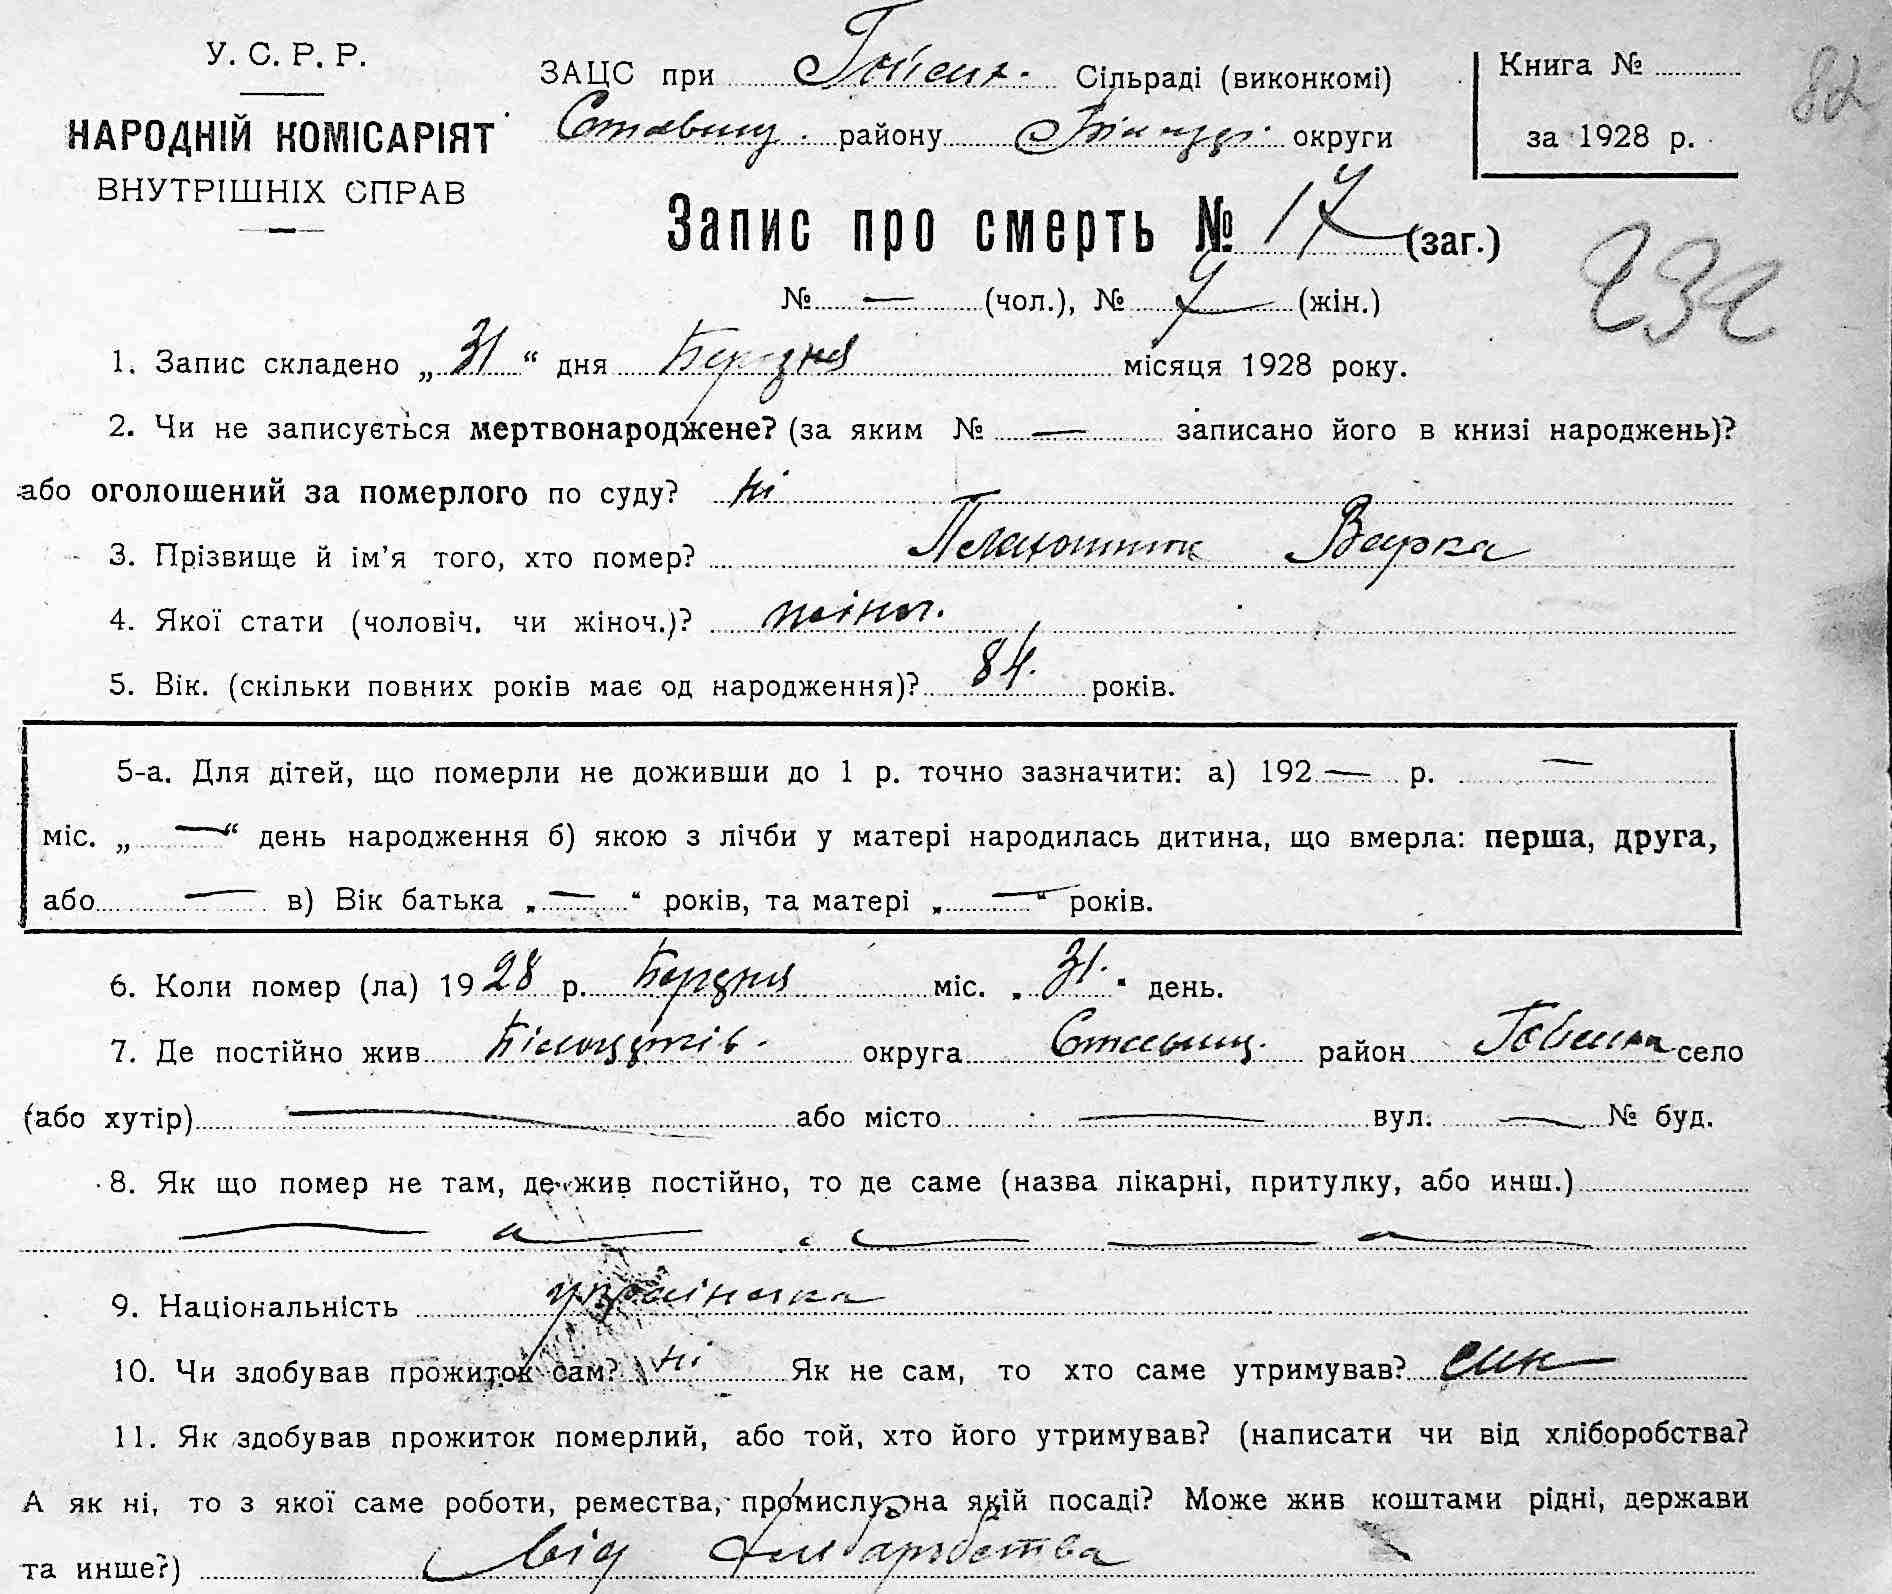 У. С. Р. Р.
НАРОДНІЙ КОМІСАРІЯТ
ВНУТРІШНІХ СПРАВ
ЗАЦС при Гейсих. Сільраді (виконкомі)
Ставищ. району Білоцер. округи
Книга №
за 1928 р.
82
Запис про смерть № 17 (заг.)
232
№ — (чол.), № 7 (жін.)
1. Запис складено „ 31 “ дня Березня місяця 1928 року.
2. Чи не записується мертвонароджене? (за яким № — записано його в книзі народжень)?
або оголошений за померлого по суду? ні
3. Прізвище й ім'я того, хто помер? Варка
4. Якої стати (чоловіч. чи жіноч.)? жіноч.
5. Вік. (скільки повних років має од народження)? 84. років.
5-а. Для дітей, що померли не доживши до 1 р. точно зазначити: а) 192 — р. —
міс. „ — “ день народження б) якою з лічби у матері народилась дитина, що вмерла: перша, друга,
або — в) Вік батька „ — “ років, та матері „ — “ років.
6. Коли помер (ла) 1928 р. Березня міс. „ 31. “ день.
7. Де постійно жив Білоцерків. округа Ставищ. район село
(або хутір) — або місто — вул. — № буд.
8. Як що помер не там, де жив постійно, то де саме (назва лікарні, притулку, або инш.)
— — — — —
9. Національність українка
10. Чи здобував прожиток сам? ні Як не сам, то хто саме утримував? син
11. Як здобував прожиток померлий, або той, хто його утримував? (написати чи від хліборобства?
А як ні, то з якої саме роботи, ремества, промислу, на якій посаді? Може жив коштами рідні, держави
та инше?) від хліборобства